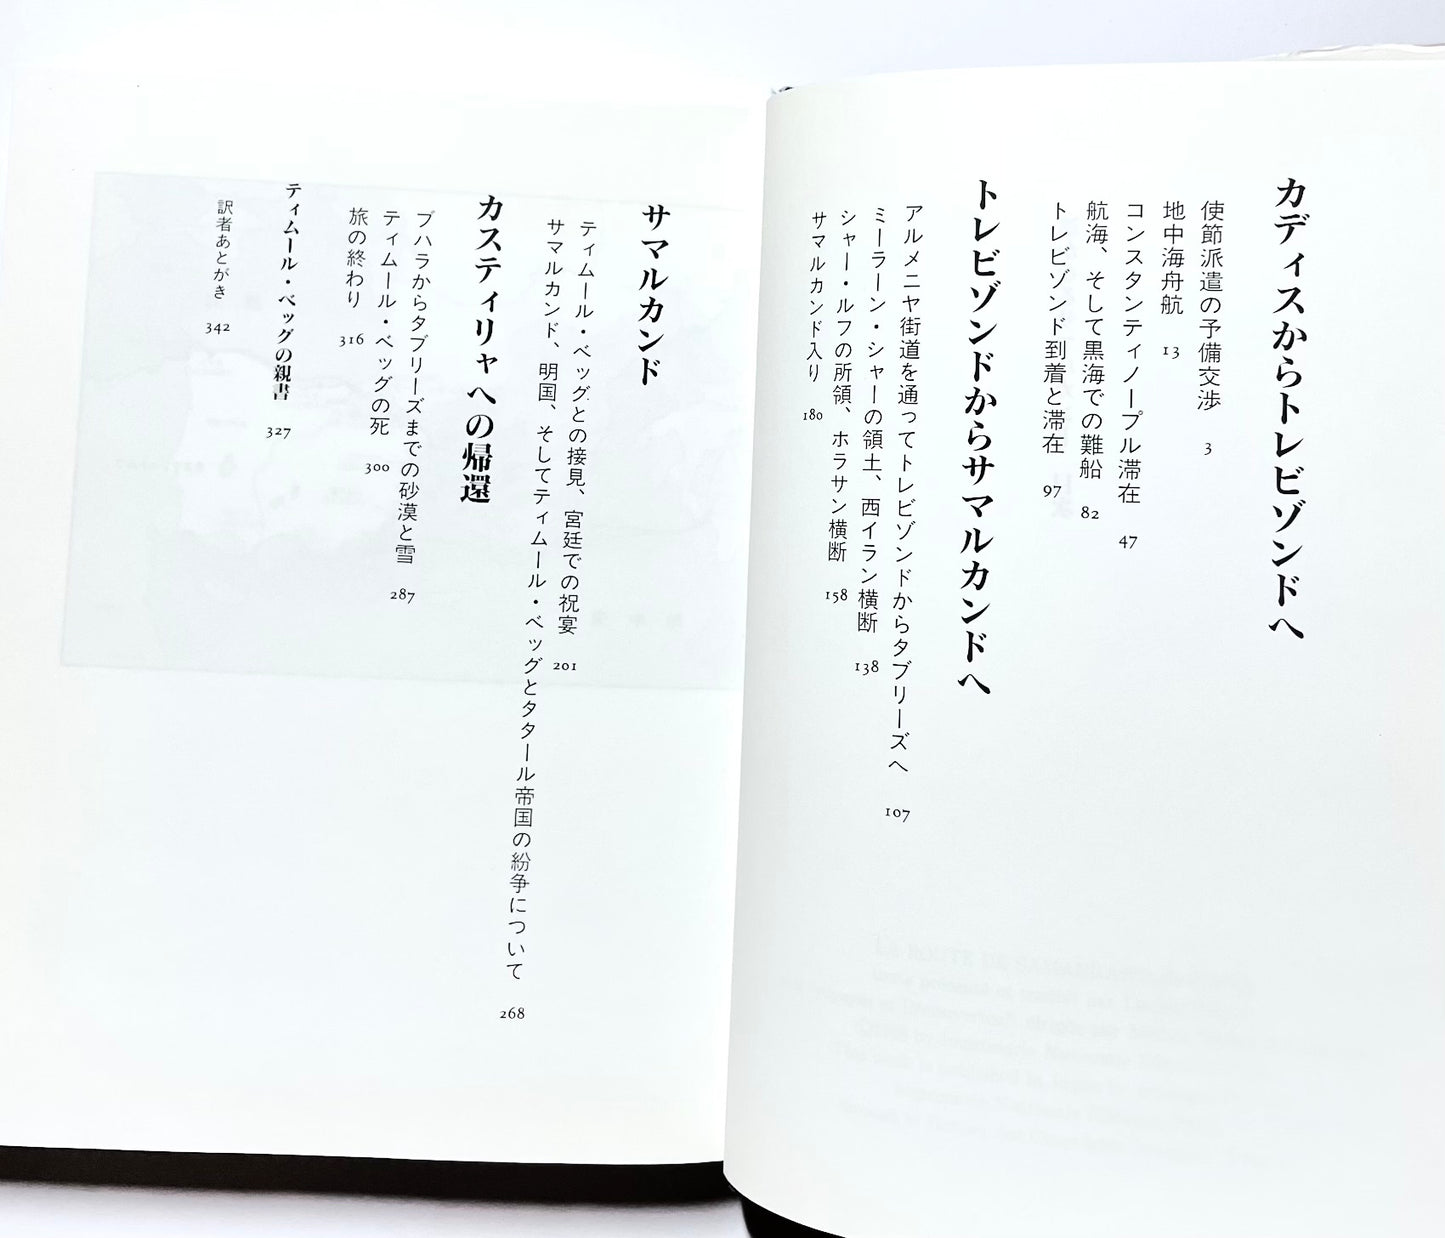 カディスからトレビゾンドへ
使節派遣の予備交渉 3
地中海舟航 13
コンスタンティノープル滞在 47
航海、そして黒海での難船 82
トレビゾンド到着と滞在 97
トレビゾンドからサマルカンドへ
アルメニヤ街道を通ってトレビゾンドからタブリーズへ 107
ミーラーン・シャーの領土、西イラン横断 138
シャー・ルフの所領、ホラサン横断 158
サマルカンド入り 180
サマルカンド
ティムール・ベッグとの接見、宮廷での祝宴 201
サマルカンド、明国、そしてティムール・ベッグとタタール帝国の紛争について 268
カスティリャへの帰還
ブハラからタブリーズまでの砂漠と雪 287
ティムール・ベッグの死 300
旅の終わり 316
ティムール・ベッグの親書 327
訳者あとがき 342